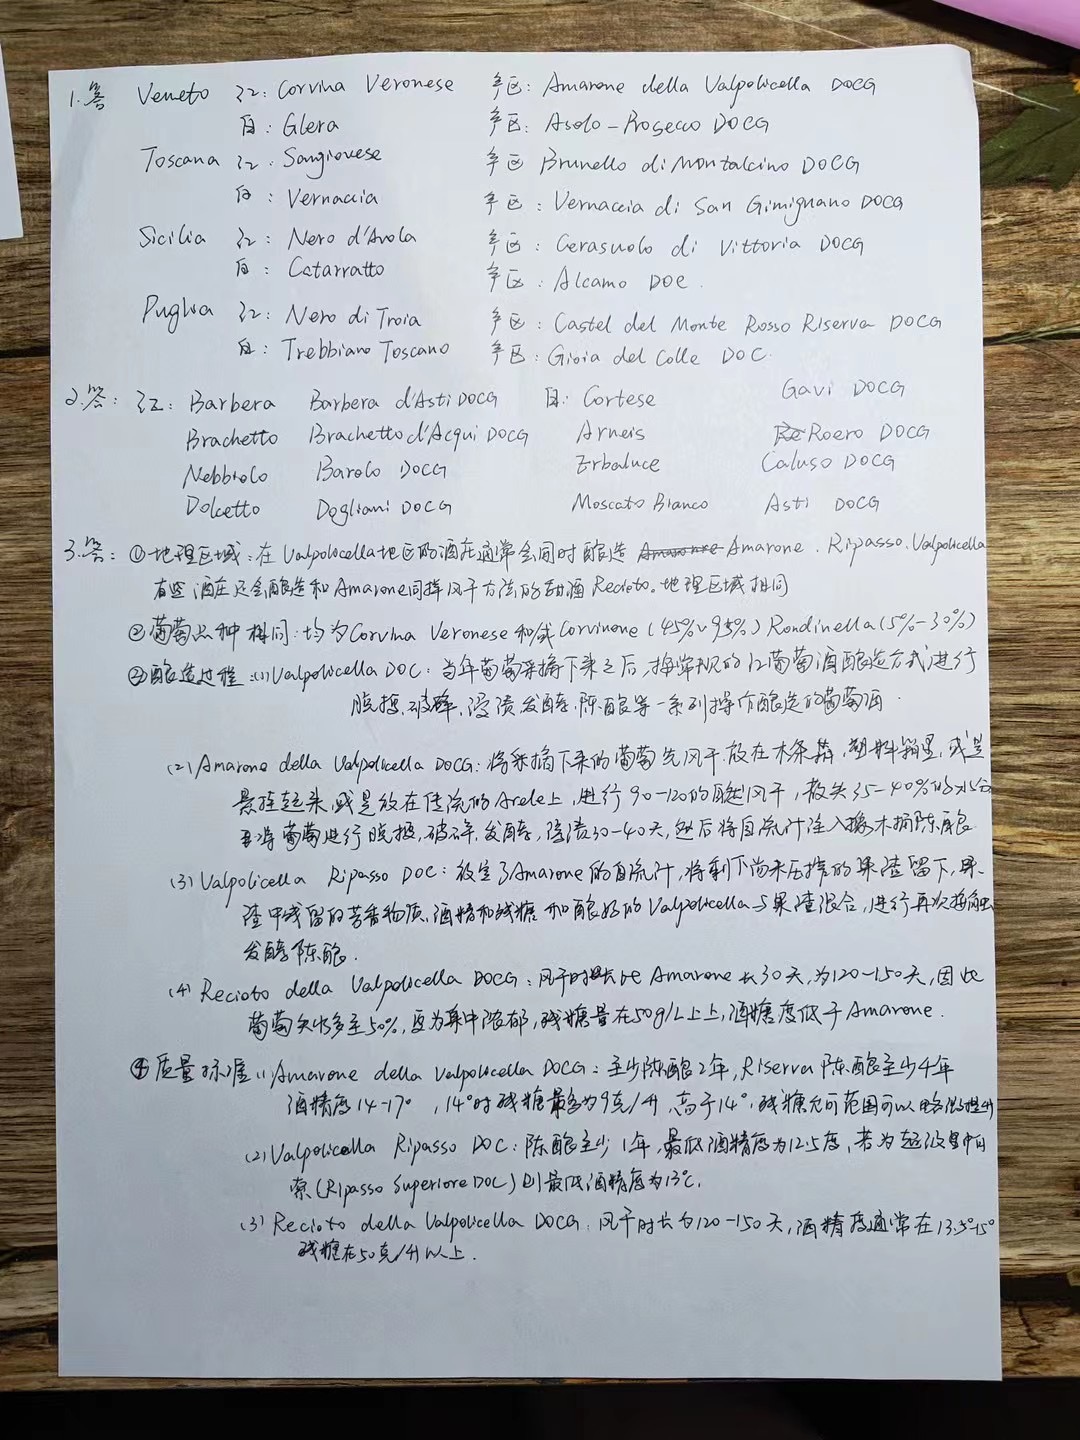 1.答 Veneto 红: Corvina Veronese 产区: Amarone della Valpolicella DOCG
白: Glera 产区: Asolo-Prosecco DOCG
Toscana 红: Sangiovese 产区 Brunello di Montalcino DOCG
白: Vernaccia 产区: Vernaccia di San Gimignano DOCG
Sicilia 红: Nero d'Avola 产区: Cerasuolo di Vittoria DOCG
白: Catarratto 产区: Alcamo DOC.
Puglia 红: Nero di Troia 产区: Castel del Monte Rosso Riserva DOCG
白: Trebbiano Toscano 产区: Gioia del Colle DOC.
2.答: 红: Barbera Barbera d'Asti DOCG 白: Cortese Gavi DOCG
Brachetto Brachetto d'Acqui DOCG Arneis Roero DOCG
Nebbiolo Barolo DOCG Erbaluce Caluso DOCG
Dolcetto Dogliani DOCG Moscato Bianco Asti DOCG
3.答: ①地理区域: 在Valpolicella地区的酒庄通常会同时酿造 Amarone、Ripasso、Valpolicella
有些酒庄还会酿造和Amarone同样风干方法的甜酒Recioto。地理区域相同
②葡萄品种相同: 均为Corvina Veronese 和或 Corvinone (45%~95%) Rondinella (5%-30%)
③酿造过程: (1) Valpolicella DOC: 当年葡萄采摘下来之后,按常规的红葡萄酒酿造方式进行
脱梗、破碎、浸渍发酵、陈酿等一系列操作酿造的葡萄酒.
(2) Amarone della Valpolicella DOCG: 将采摘下来的葡萄先风干.放在木条筐,塑料箱里,或是
悬挂起来,或是放在传统的Arele上,进行90-120的自然风干,散失35-40%的水分
再将葡萄进行脱梗、破碎、发酵,浸渍30-40天,然后将自流汁注入橡木桶陈酿
(3) Valpolicella Ripasso DOC: 放空了Amarone的自流汁,将剩下尚未压榨的果渣留下,果
渣中残留的芳香物质、酒精和残糖 和酿好的Valpolicella与果渣混合,进行再次接触
发酵陈酿.
(4) Recioto della Valpolicella DOCG: 风干时长比 Amarone 长30天,为120-150天,因此
葡萄失水多至50%,更为集中浓郁,残糖量在50g/L以上,酒精度低于Amarone.
④质量标准 (1) Amarone della Valpolicella DOCG: 至少陈酿2年, Riserva 陈酿至少4年
酒精度14-17°,14°时残糖最多为9克/升,高于14°,残糖允许范围可以略微提升
(2) Valpolicella Ripasso DOC: 陈酿至少1年,最低酒精度为12.5度,若为超级里帕
索(Ripasso Superiore DOC)则最低酒精度为13°.
(3) Recioto della Valpolicella DOCG: 风干时长为120-150天,酒精度通常在13.5°-15°
残糖在50克/升以上.